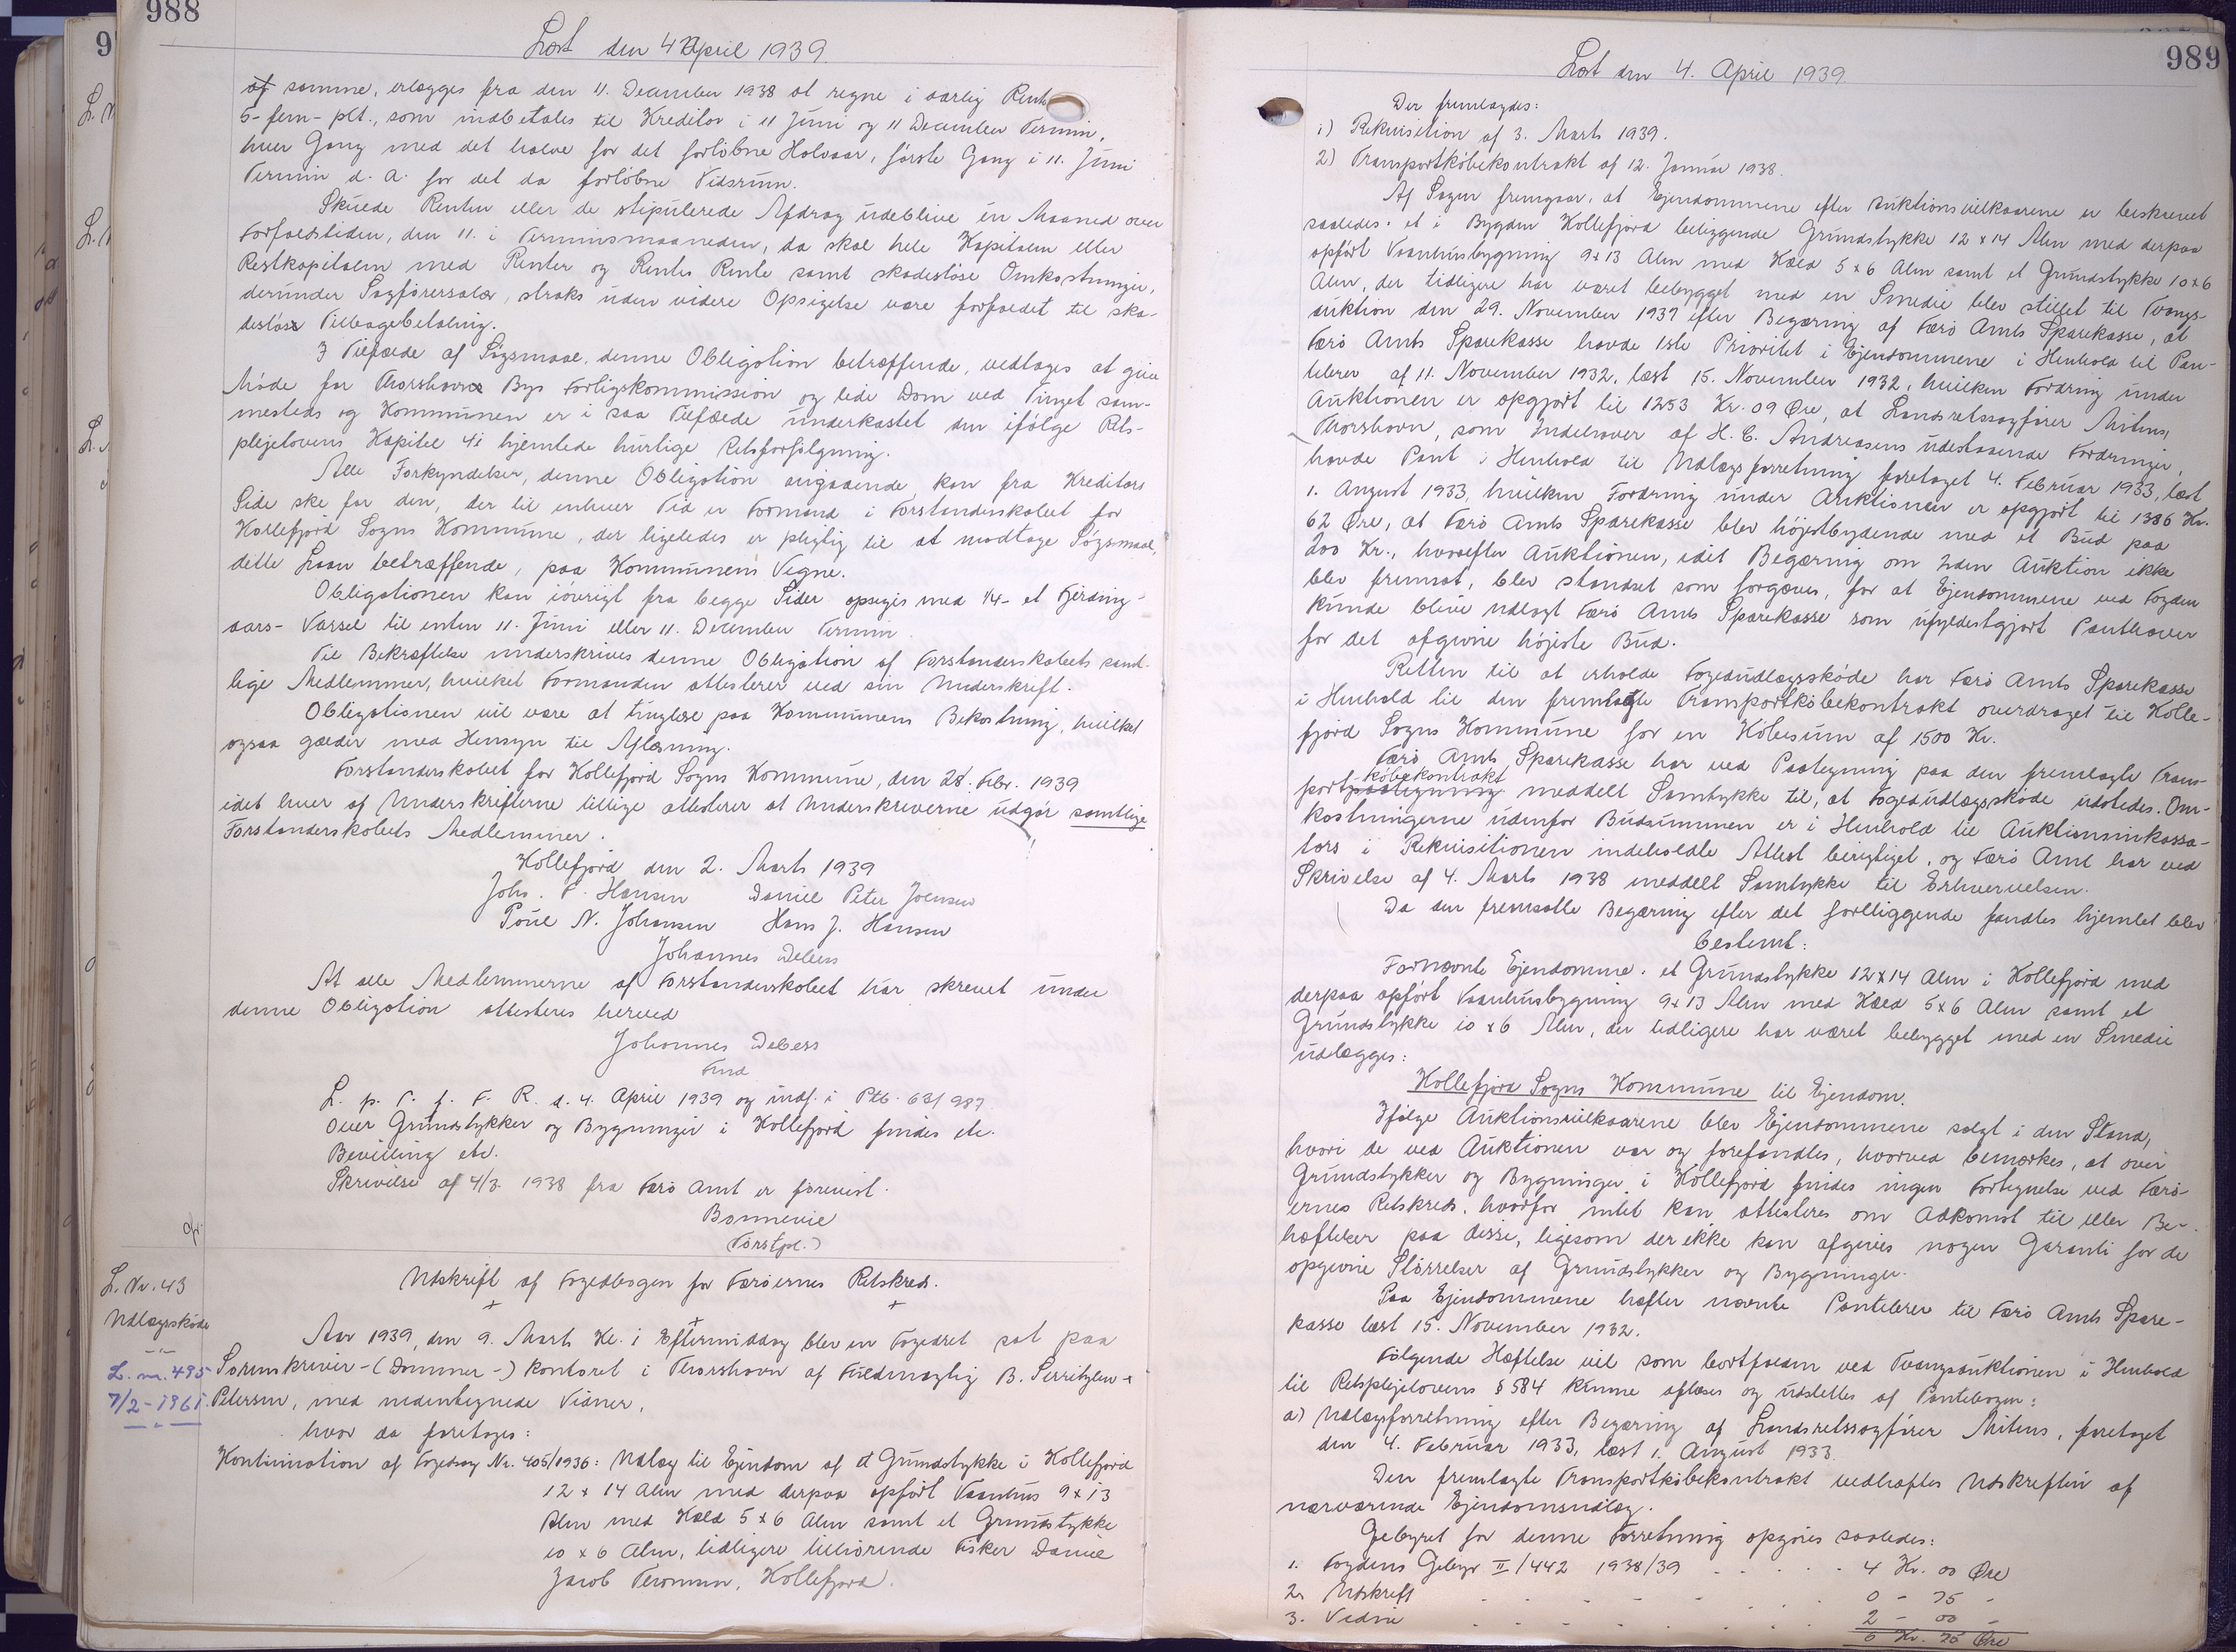 988
Læst den 4 April 1939.
af samme, erlægges fra den 11. December 1938 at regne i aarlig Rente
5-fem-pCt., som indbetales til Kreditor i 11 Juni og 11 December Termin,
hver Gang med det halve for det forløbne Halvaar, første Gang i 11. Juni
Termin d. A. for det da forløbne Tidsrum.
Skulde Renten eller de stipulerede Afdrag udeblive en Maaned over
Forfaldstiden, den 11. i Terminsmaaneden, da skal hele Kapitalen eller
Restkapitalen med Renter og Renters Rente samt skadesløse Omkostninger,
derunder Sagførersalær, straks uden videre Opsigelse være forfaldet til ska-
desløs Tilbagebetaling.
I Tilfælde af Søgsmaal, denne Obligation betræffende, vedtages at give
Møde for Thorshavns Bys Forligskommission og lide Dom ved Tinget sam-
mesteds og Kommunen er i saa Tilfælde underkastet den ifølge Rets-
plejelovens Kapitel 41 hjemlede hurtige Retsforfølgning.
Alle Forkyndelser, denne Obligation angaaende, kan fra Kreditors
Side ske for den, der til enhver Tid er Formand i Forstanderskabet for
Kollefjord Sogns Kommune, der ligeledes er pligtig til at modtage Søgsmaal,
dette Laan betræffende, paa Kommunens Vegne.
Obligationen kan iøvrigt fra begge Sider opsiges med 1/4- et Fjerding-
aars- Varsel til enten 11. Juni eller 11. December Termin.
Til Bekræftelse underskrives denne Obligation af Forstanderskabets samt-
lige Medlemmer, hvilket Formanden attesterer ved sin Underskrift.
Obligationen vil være at tinglæse paa Kommunens Bekostning, hvilket
ogsaa gælder med Hensyn til Aflæsning.
Forstanderskabet for Kollefjord Sogns Kommune, den 28. Febr. 1939
idet hver af Underskrifterne tillige attesterer at Underskriverne udgør samtlige
Forstanderskabets Medlemmer.
Kollefjord den 2. Marts 1939
Johs. P. Hansen Daniel Peter Joensen
Poul N. Johansen Hans J. Hansen
Johannes Debess
At alle Medlemmerne af Forstanderskabet har skrevet under
denne Obligation attesteres herved
Johannes Debess
Fmd
L. p. T. f. F. R. d. 4. April 1939 og indf. i Ptb. 63/987.
Over Grundstykker og Bygninger i Kollefjord findes etc.
Bevilling etc.
Skrivelse af 4/3 1938 fra Færø Amt er forevist.
Bonnevie
(Forstpl.)
L. Nr. 43
Udlægsskøde
L. nr. 495
7/2-1961.
Udskrift af Fogedbogen for Færøernes Retskreds.
Aar 1939, den 9. Marts Kl. 1 Eftermiddag blev en Fogedret sat paa
Sorenskriver-(Dommer-) kontoret i Thorshavn af Fuldmægtig B. Serritzlew-
Petersen, med nedentegnede Vidner,
hvor da foretoges:
Kontinuation af Fogedsag Nr. 405/1936: Udlæg til Ejendom af et Grundstykke i Kollefjord
12 x 14 Alen med derpaa opført Vaanhus 9 x 13
Alen med Kæld 5 x 6 Alen samt et Grundstykke
10 x 6 Alen, tidligere tilhørende Fisker Daniel
Jacob Thomsen, Kollefjord.
989
Læst den 4. April 1939
Der fremlagdes:
1) Rekvisition af 3. Marts 1939.
2) Transportkøbekontrakt af 12. Januar 1938.
Af Sagen fremgaar, at Ejendommene efter Auktionsvilkaarene er beskrevet
saaledes: et i Bygden Kollefjord beliggende Grundstykke 12 x 14 Alen med derpaa
opført Vaanhusbygning 9x13 Alen med Kæld 5 x 6 Alen samt et Grundstykke 10x6
Alen, der tidligere har været bebygget med en Smedie blev stillet til Tvangs-
auktion den 29. November 1937 efter Begæring af Færø Amts Sparekasse, at
Færø Amts Sparekasse havde 1ste Prioritet i Ejendommene i Henhold til Pan-
tebrev af 11. November 1932, læst 15. November 1932, hvilken Fordring under
Auktionen er opgjort til 1253 Kr. 09 Øre, at Landsretssagfører Mitens,
Thorshavn, som Indehaver af H. C. Andreasens udestaaende Fordringer,
havde Pant i Henhold til Udlægsforretning foretaget 4. Februar 1933, læst
1. August 1933, hvilken Fordring under Auktionen er opgjort til 1386 Kr.
62 Øre, at Færø Amts Sparekasse blev højestbydende med et Bud paa
200 Kr., hvorefter Auktionen, idet Begæring om 2den Auktion ikke
blev fremsat, blev standset som forgæves, for at Ejendommene ved Fogden
kunde blive udlagt Færø Amts Sparekasse som ufyldestgjort Panthaver
for det afgivne højeste Bud.
Retten til at erholde Fogedudlægsskøde har Færø Amts Sparekasse
i Henhold til den fremlagte Transportkøbekontrakt overdraget til Kolle-
fjord Sogns Kommune for en Købesum af 1500 Kr.
Færø Amts Sparekasse har ved Paategning paa den fremlagte Trans-
købekontrakt
portpaategning meddelt Samtykke til, at Fogedudlægsskøde udstedes. Om-
kostningerne udenfor Budsummen er i Henhold til Auktionsinkassa-
tors i Rekvisitionen indeholdte Attest berigtiget, og Færø Amt har ved
Skrivelse af 4. Marts 1938 meddelt Samtykke til Erhvervelsen.
Da den fremsatte Begæring efter det forliggende fandtes hjemlet blev
bestemt:
Fornævnte Ejendomme: et Grundstykke 12x14 Alen i Kollefjord med
derpaa opført Vaanhusbygning 9x13 Alen med Kæld 5x6 Alen samt et
Grundstykke 10 x 6 Alen, der tidligere har været bebygget med en Smedie
udlægges:
Kollefjord Sogns Kommune til Ejendom.
Ifølge Auktionsvilkaarene blev Ejendommene solgt i den Stand,
hvori de ved Auktionen var og forefandtes, hvorved bemærkes, at over
Grundstykker og Bygninger i Kollefjord findes ingen Fortegnelse ved Færø-
ernes Retskreds, hvorfor intet kan attesteres om Adkomst til eller Be-
hæftelser paa disse, ligesom der ikke kan afgives nogen Garanti for de
opgivne Størrelser af Grundstykker og Bygninger.
Paa Ejendommene hæfter nævnte Pantebrev til Færø Amts Spare-
kasse læst 15. November 1932.
Følgende Hæftelse vil som bortfalden ved Tvangsauktionen i Henhold
til Retsplejelovens § 584 kunne aflæses og udslettes af Pantebogen:
a) Udlægsforretning efter Begæring af Landsretssagfører Mitens, foretaget
den 4. Februar 1933, læst 1. August 1933.
Den fremlagte Transportkøbekontrakt vedhæftes Udskriften af
nærværende Ejendomsudlæg.
Gebyret for denne Forretning opgøres saaledes:
1. Fogdens Gebyr II/442 1938/39 . . . . . 4 Kr. 00 Øre
2. Udskrift - - - - - - 0 - 75 -
3. Vidne - - - - - - 2 - 00 -
6 Kr. 75 Øre